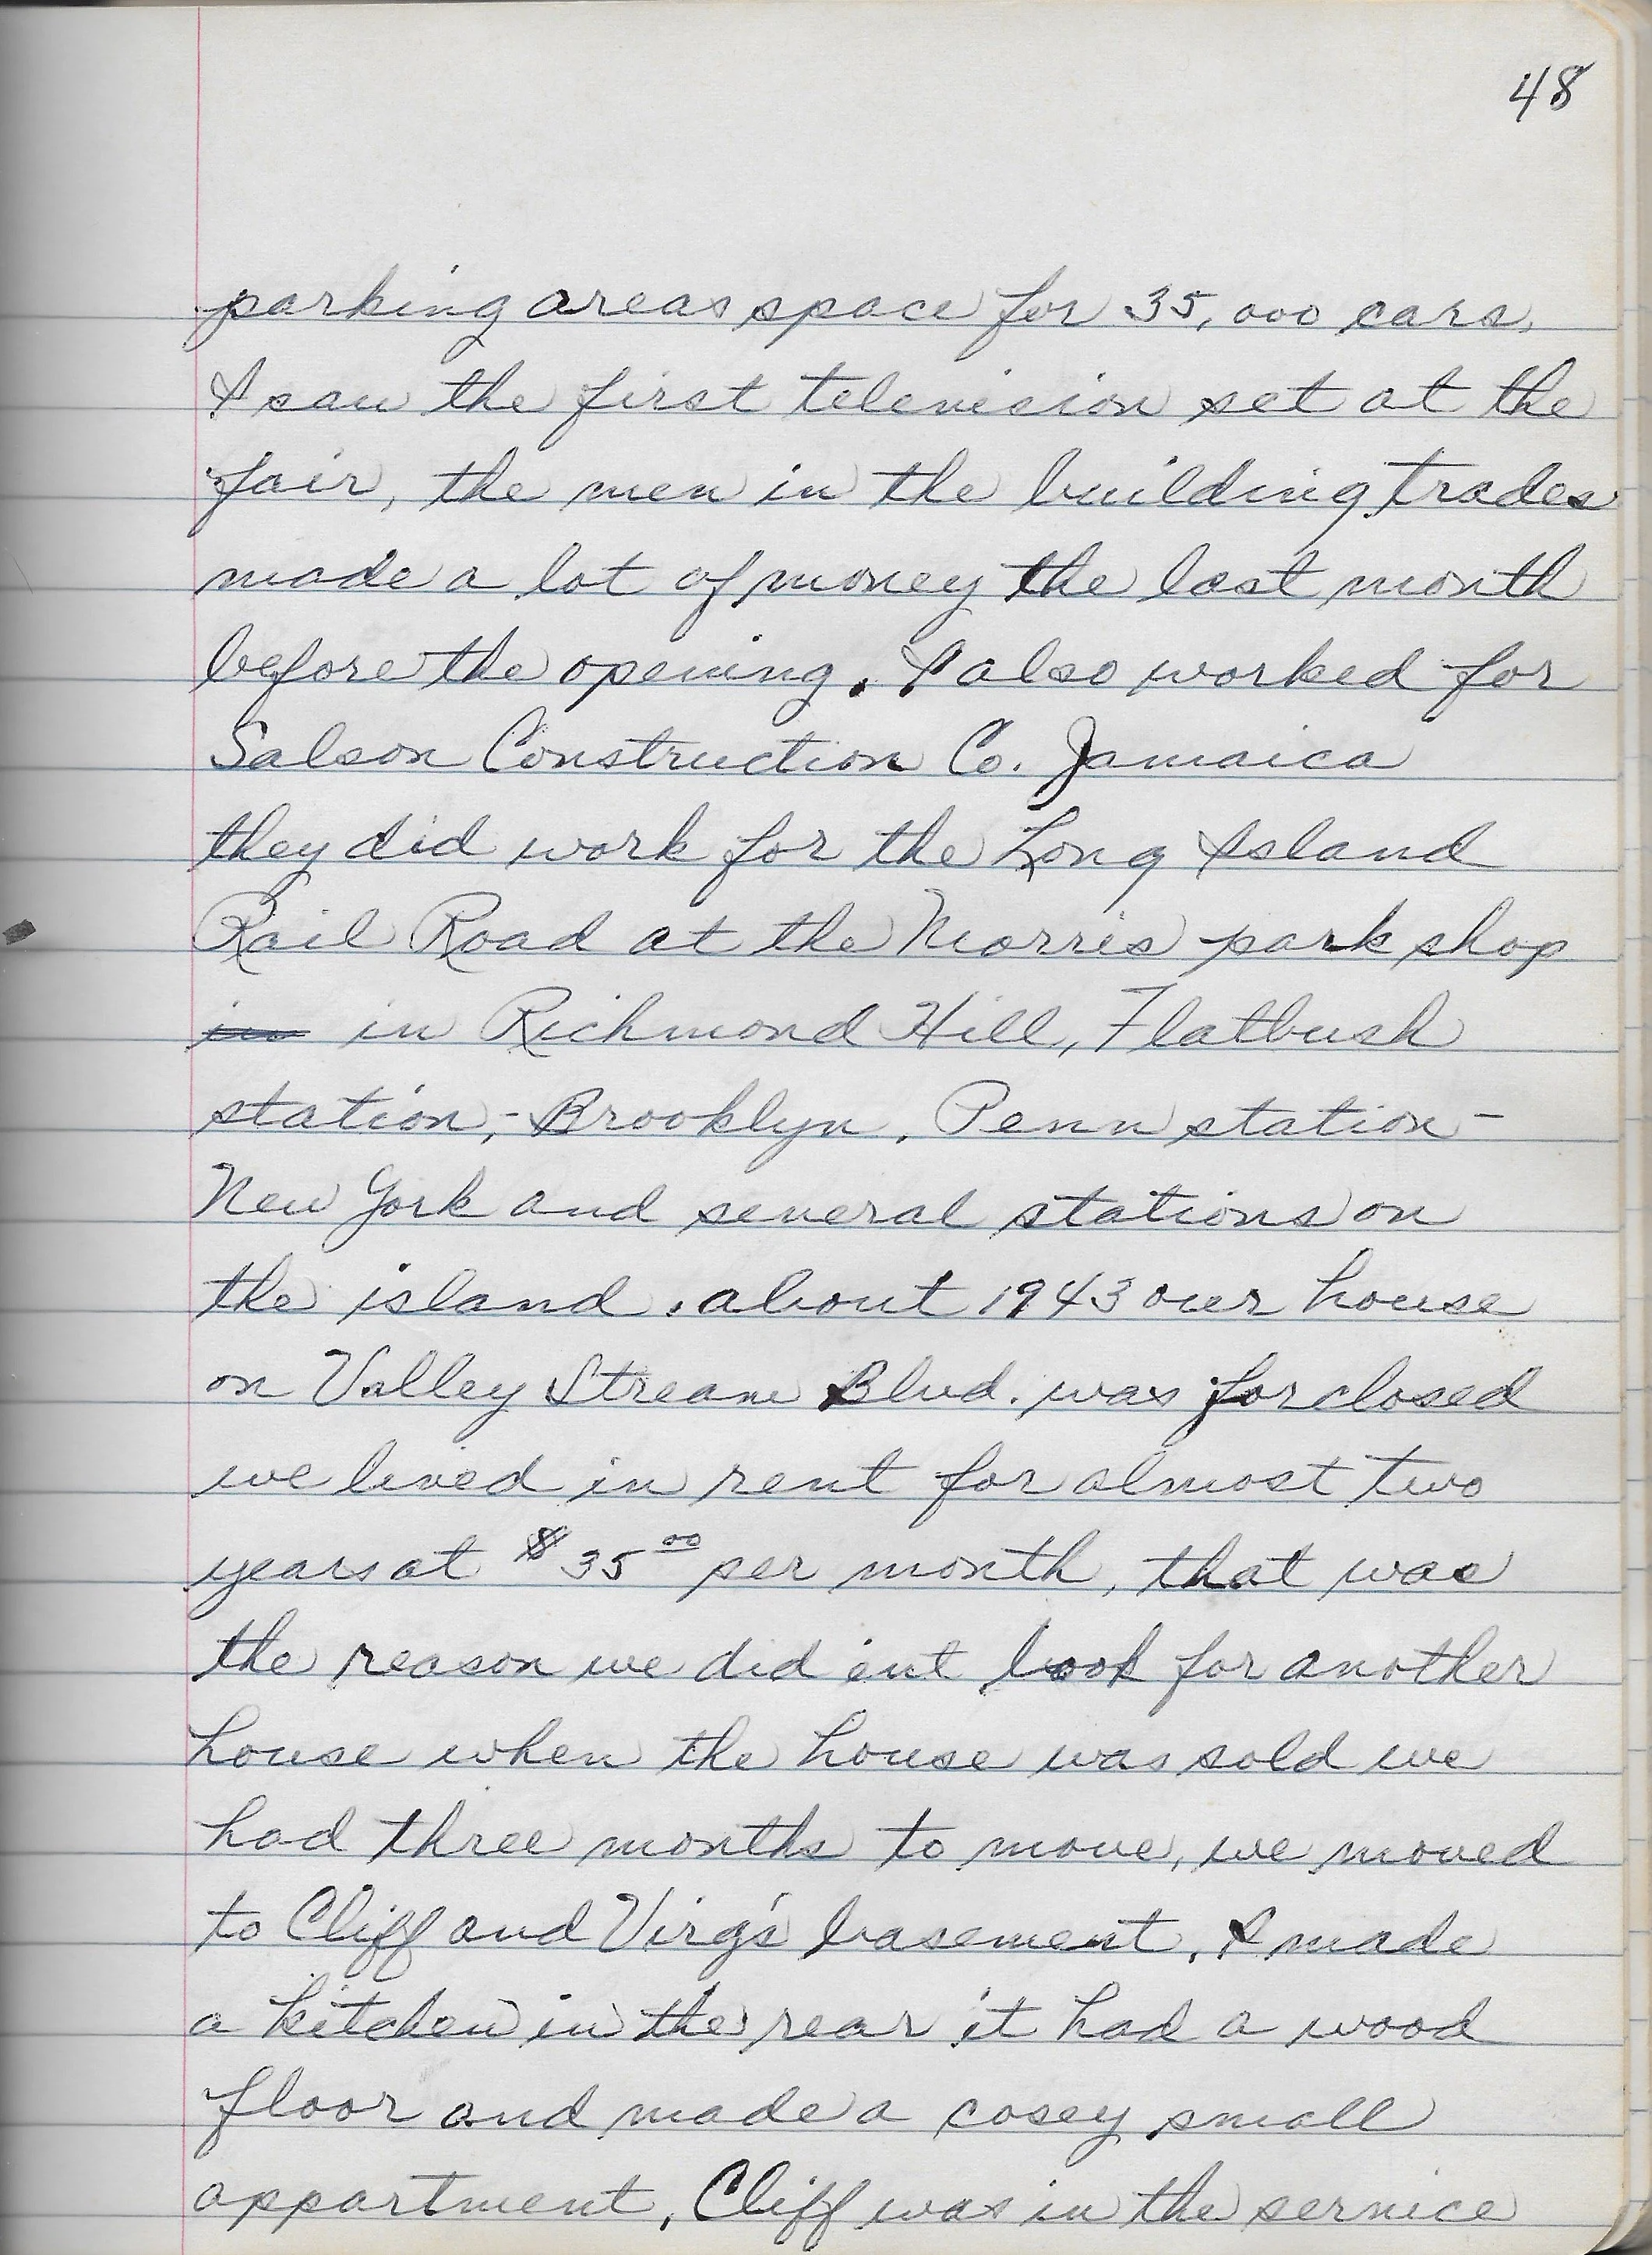 48
parking areas space for 35,000 cars,
I saw the first television set at the
fair, the men in the building trades
made a lot of money the last month
before the opening. I also worked for
Salson Construction Co. Jamaica
they did work for the Long Island
Rail Road at the Morris park shop
in in Richmond Hill, Flatbush
station,- Brooklyn, Penn station -
New York and several stations on
the island. about 1943 our house
on Valley Stream Blvd. was forclosed
we lived in rent for almost two
years at $35.00 per month, that was
the reason we did ent look for another
house when the house was sold we
had three months to move, we moved
to Cliff and Virg's basement, I made
a kitchen in the rear it had a wood
floor and made a cosey small
appartment, Cliff was in the service